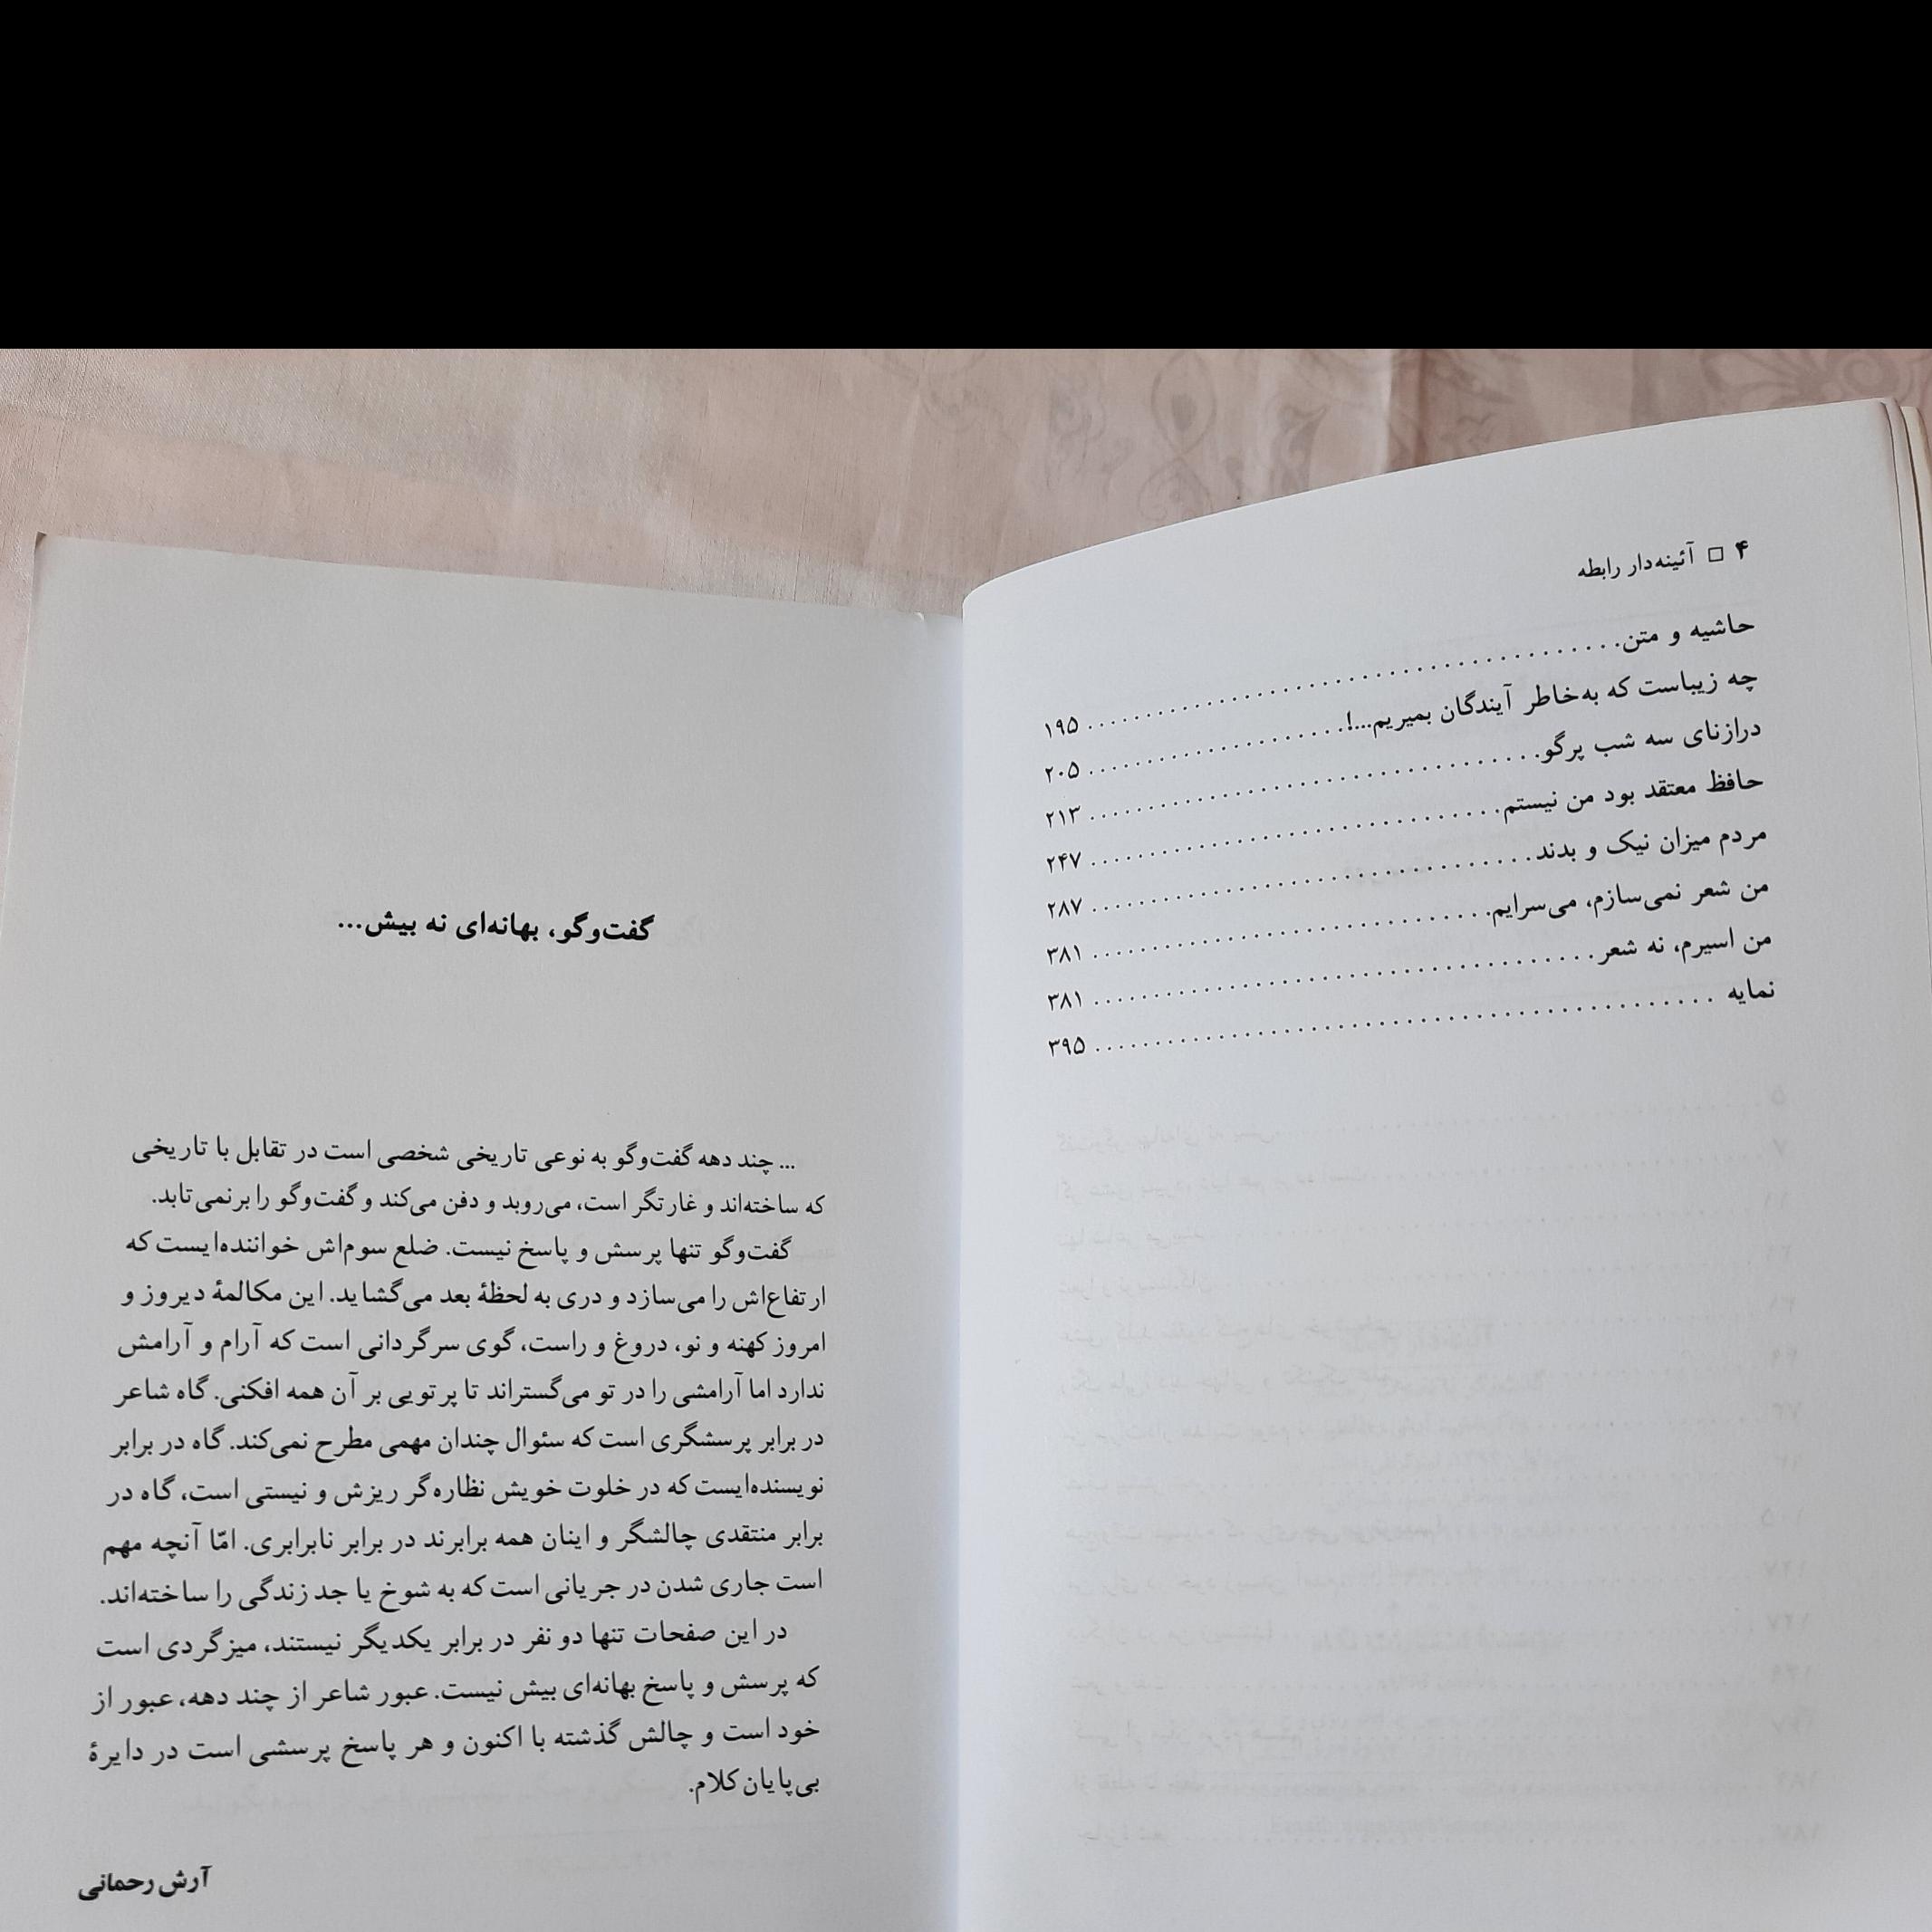 ۴ □ آئینه‌دار رابطه
حاشیه و متن ........................................ ۱۹۵
چه زیباست که به‌خاطر آیندگان بمیریم...! ........................................ ۲۰۵
درازنای سه شب پرگو ........................................ ۲۱۳
حافظ معتقد بود من نیستم ........................................ ۲۴۷
مردم میزان نیک و بدند ........................................ ۲۸۷
من شعر نمی‌سازم، می‌سرایم ........................................ ۳۸۱
من اسیرم، نه شعر ........................................ ۳۸۱
نمایه ........................................ ۳۹۵
گفت‌وگو، بهانه‌ای نه بیش...
... چند دهه گفت‌وگو به نوعی تاریخی شخصی است در تقابل با تاریخی
که ساخته‌اند و غارتگر است، می‌روبد و دفن می‌کند و گفت‌وگو را برنمی‌تابد.
گفت‌وگو تنها پرسش و پاسخ نیست. ضلع سوم‌اش خواننده‌ایست که
ارتفاع‌اش را می‌سازد و دری به لحظهٔ بعد می‌گشاید. این مکالمهٔ دیروز و
امروز کهنه و نو، دروغ و راست، گوی سرگردانی است که آرام و آرامش
ندارد اما آرامشی را در تو می‌گستراند تا پرتویی بر آن همه افکنی. گاه شاعر
در برابر پرسشگری است که سئوال چندان مهمی مطرح نمی‌کند. گاه در برابر
نویسنده‌ایست که در خلوت خویش نظاره‌گر ریزش و نیستی است، گاه در
برابر منتقدی چالشگر و اینان همه برابرند در برابر نابرابری. امّا آنچه مهم
است جاری شدن در جریانی است که به شوخ یا جد زندگی را ساخته‌اند.
در این صفحات تنها دو نفر در برابر یکدیگر نیستند، میزگردی است
که پرسش و پاسخ بهانه‌ای بیش نیست. عبور شاعر از چند دهه، عبور از
خود است و چالش گذشته با اکنون و هر پاسخ پرسشی است در دایرهٔ
بی‌پایان کلام.
آرش رحمانی